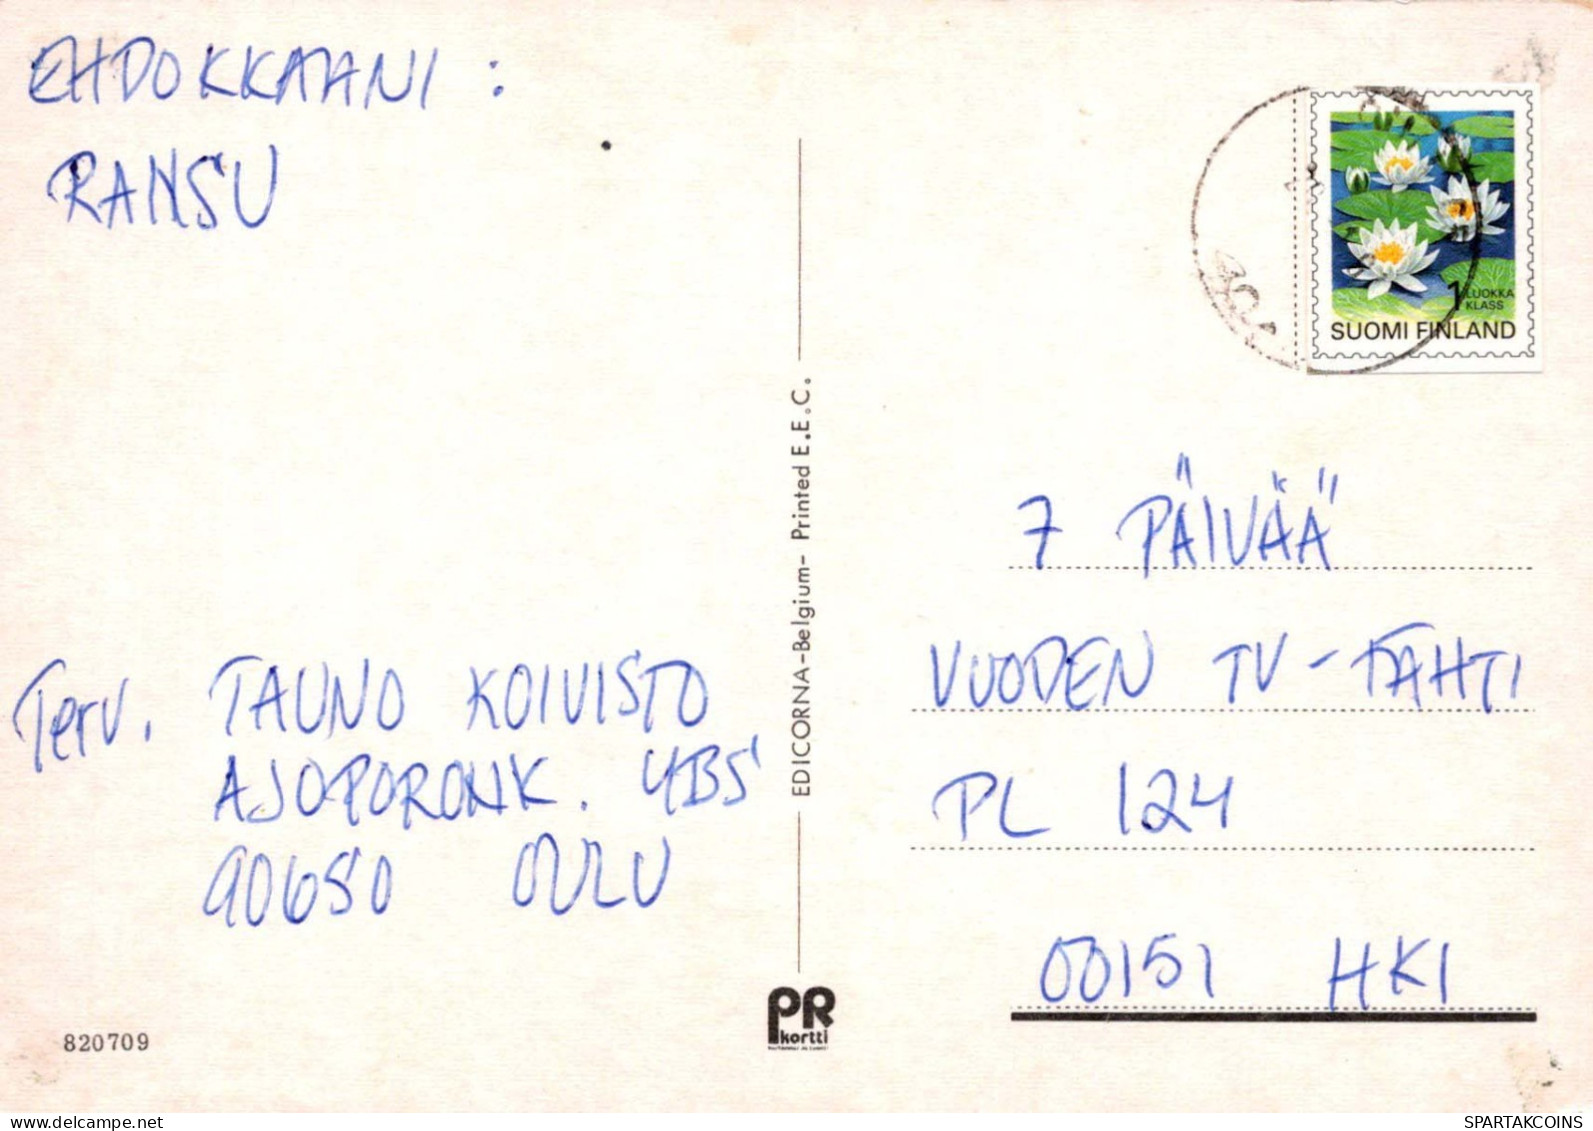 EHDOKKAANI :
RANSU
Terv. TAUNO KOIVISTO
AJOPORONK. 4B5
90650 OULU
820709
EDICORNA-Belgium- Printed E.E.C.
PR
kortti
1 LUOKKA
KLASS
SUOMI FINLAND
7 PÄIVÄÄ
VUODEN TV-TÄHTI
PL 124
00151 HKI
SPARTAKCOINS